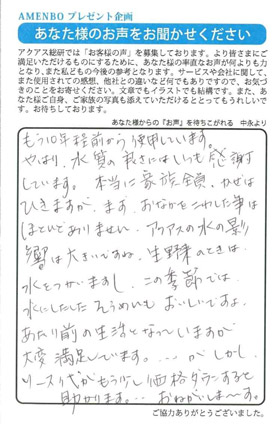 AMENBO プレゼント企画
あなた様の声をお聞かせください
アクアス総研では「お客様の声」を募集しております。より皆さまにご
満足いただけるものにするために、あなた様の率直なお声が何よりも力
となり、また私どもの今後の参考となります。サービスや会社に関して、
また使用されての感想、他社との違いなど何でもありますので、お気づ
きのことをお寄せください。文章でもイラストでも結構です。また、あ
なた様ご自身、ご家族の写真も添えていただけるととってもうれしいで
す。お待ちしております。
あなた様からの『お声』を待ちこがれる 中永より
もう10年程前から使用しています。
やはり、水質の良さにはいつも感謝
しています。本当に家族全員、かぜは
ひきますが、まず、おなかをこわした事は
ほとんどありません。アクアスの水の影
響は大きいですね。生野菜のときは、
水をつかいますし、この季節では
水にしたした そうめんもおいしいですよ。
あたり前の生活となっていますが
大変満足しています。… が しかし、
リース代がもう少し価格ダウンすると
助かります。… おねがいしまーす。
ご協力ありがとうございました。